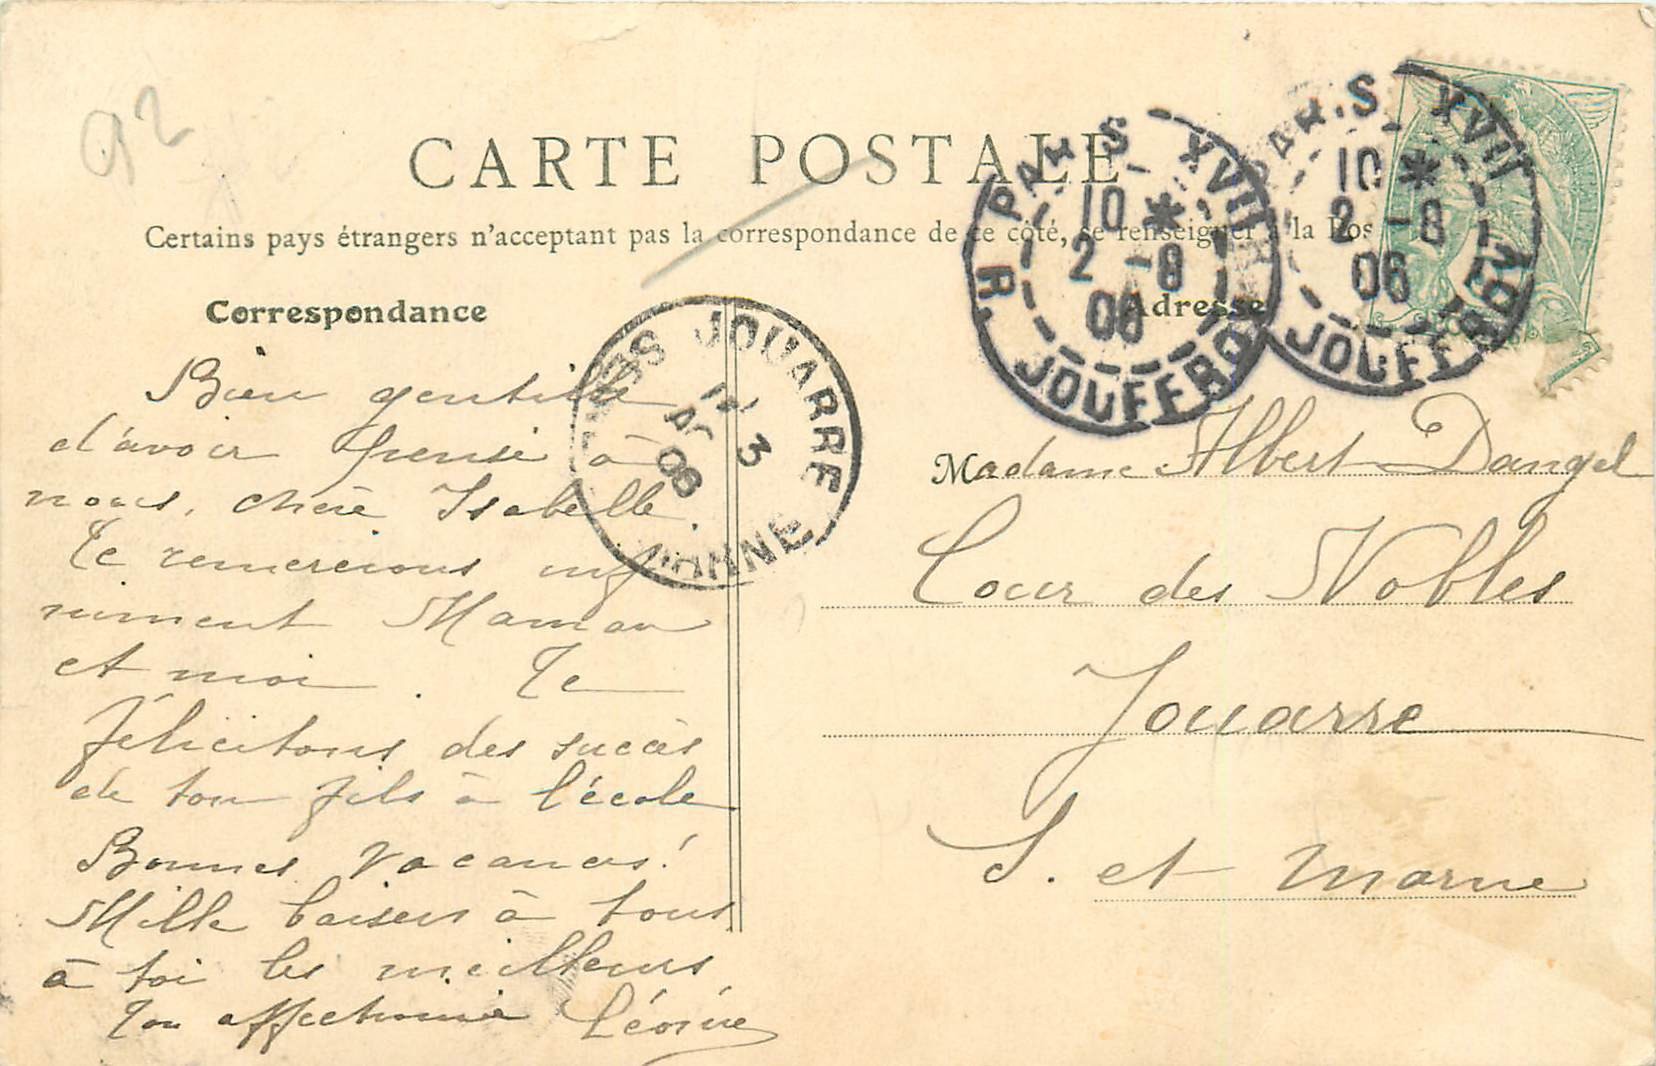 92
CARTE POSTALE
Certains pays étrangers n'acceptant pas la correspondance de ce côté, se renseigner à la Pos
Correspondance
Adresse
PARIS XVII
10 *
2 -8
06
R. JOUFFROY
PARIS XVII
10 *
2 -8
06
JOUFFROY
JOUARRE
12 3
AO
06
SEINE ET MARNE
Bien gentille
d'avoir pensé à
nous, chère Isabelle.
Te remercions infi
niment Maman
et moi. Te
félicitons des succès
de ton fils à l'école
Bonnes vacances!
Mille baisers à tous
à toi les meilleurs
Ton affectionnée Léonie
Madame Albert Dangel
Cour des Nobles
Jouarre
S. et Marne